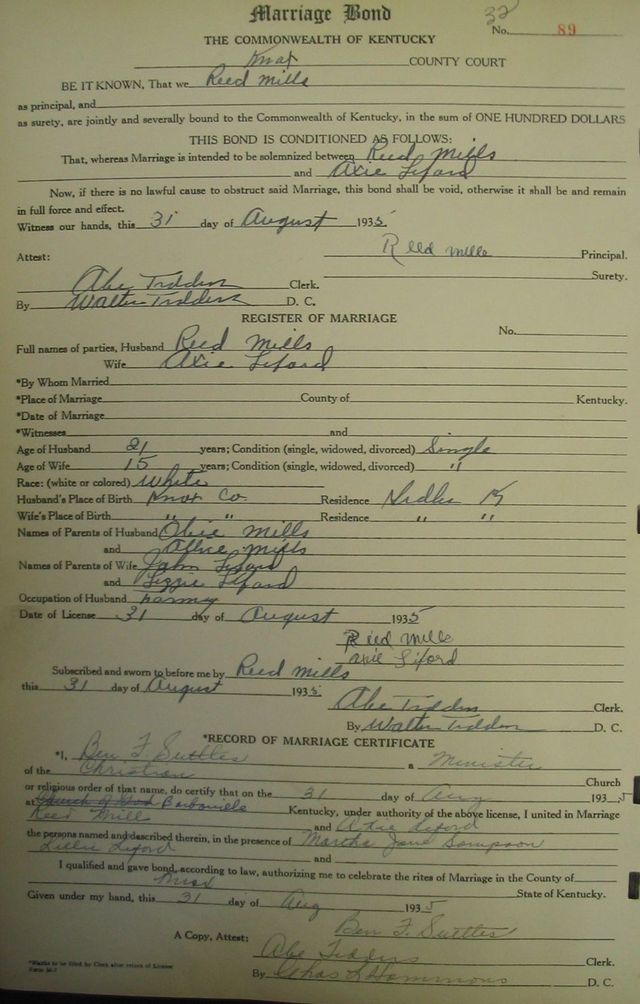 Marriage Bond
32
No. 89
THE COMMONWEALTH OF KENTUCKY
Knox COUNTY COURT
BE IT KNOWN, That we Reed Mills
as principal, and
as surety, are jointly and severally bound to the Commonwealth of Kentucky, in the sum of ONE HUNDRED DOLLARS
THIS BOND IS CONDITIONED AS FOLLOWS:
That, whereas Marriage is intended to be solemnized between Reed Mills
and Axie Liford
Now, if there is no lawful cause to obstruct said Marriage, this bond shall be void, otherwise it shall be and remain
in full force and effect.
Witness our hands, this 31 day of August 1935
Reed Mills Principal.
Attest:
Surety.
Abe Tiddens Clerk.
By Walter Tiddens D. C.
REGISTER OF MARRIAGE
No.
Full names of parties, Husband Reed Mills
Wife Axie Liford
*By Whom Married
*Place of Marriage County of Kentucky.
*Date of Marriage
*Witnesses and
Age of Husband 21 years; Condition (single, widowed, divorced) Single
Age of Wife 15 years; Condition (single, widowed, divorced) "
Race: (white or colored) White
Husband's Place of Birth Knox Co Residence Ky
Wife's Place of Birth " " Residence " "
Names of Parents of Husband Obie Mills
and Mills
Names of Parents of Wife John Liford
and Lizzie Liford
Occupation of Husband
Date of License 31 day of August 1935
Reed Mills
Axie Liford
Subscribed and sworn to before me by Reed Mills
this 31 day of August 1935
Abe Tiddens Clerk.
By Walter Tiddens D. C.
*RECORD OF MARRIAGE CERTIFICATE
*I, Ben F Suttles a Minister
of the Christian Church
or religious order of that name, do certify that on the 31 day of Aug 1935
at Church of God Barbourville Kentucky, under authority of the above license, I united in Marriage
Reed Mills and Axie Liford
the persons named and described therein, in the presence of Martha Jane Sampson
Lillie Liford and
I qualified and gave bond, according to law, authorizing me to celebrate the rites of Marriage in the County of
Knox State of Kentucky.
Given under my hand, this 31 day of Aug 1935
Ben F. Suttles
A Copy, Attest:
Abe Tiddens Clerk.
By Chas L Hammons D. C.
*Blanks to be filled by Clerk after return of License
Form M-7